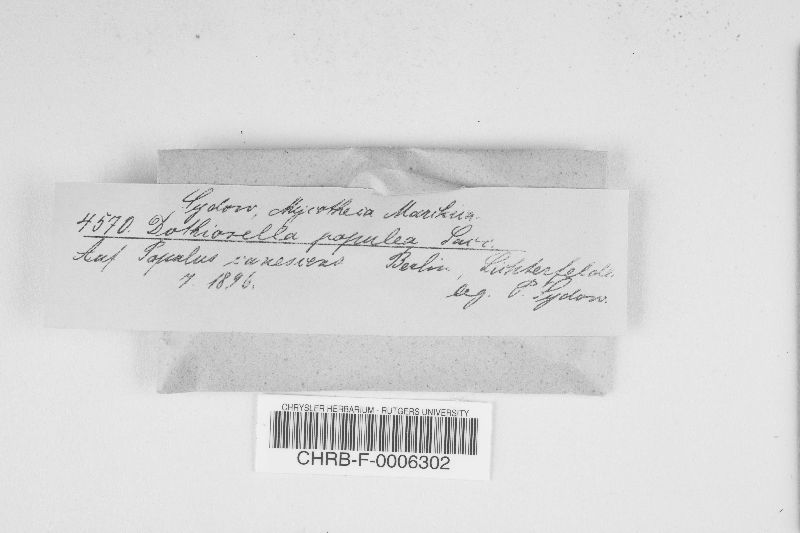 Sydow, Mycotheca Marchica.
4570. Dothiorella populea Sacc.
Auf Populus canescens Berlin, Lichterfelde
7 1896. leg. P. Sydow.
CHRYSLER HERBARIUM - RUTGERS UNIVERSITY
CHRB-F-0006302